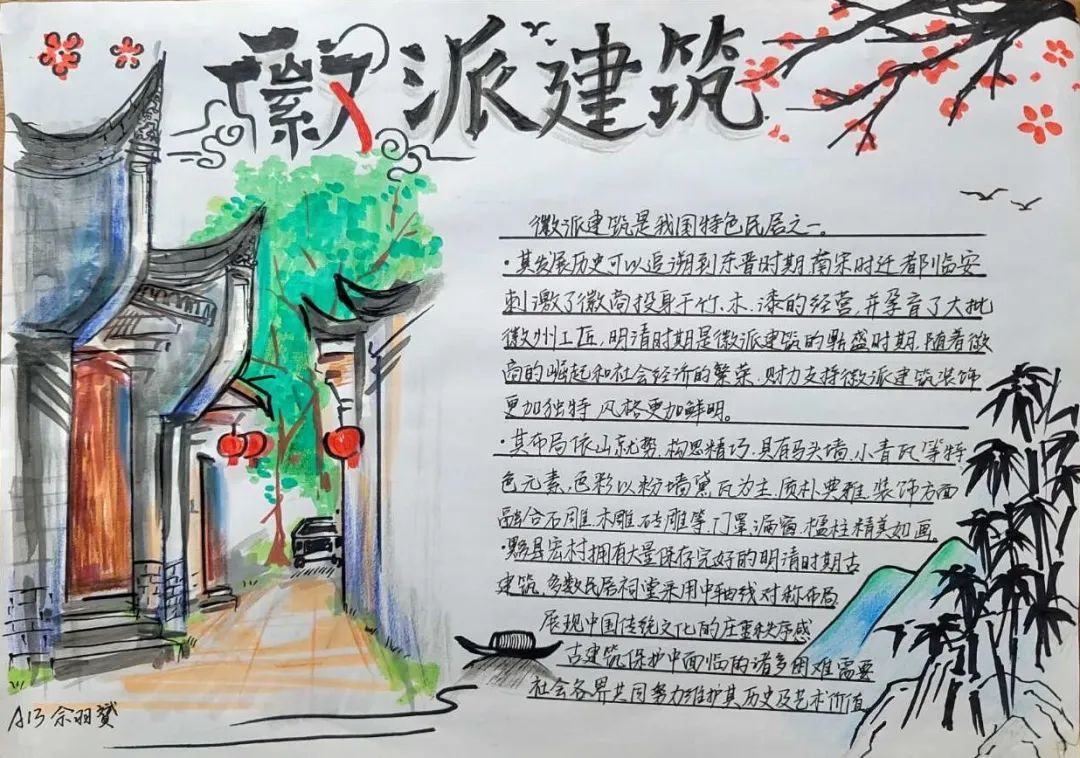 徽派建筑
徽派建筑是我国特色民居之一。
·其发展历史可以追溯到东晋时期,南宋时迁都临安
刺激了徽商投身于竹、木、漆的经营,并孕育了大批
徽州工匠,明清时期是徽派建筑的鼎盛时期,随着徽
商的崛起和社会经济的繁荣,财力支持徽派建筑装饰
更加独特,风格更加鲜明。
·其布局依山就势,构思精巧,具有马头墙、小青瓦等特
色元素,色彩以粉墙黛瓦为主,质朴典雅,装饰方面
融合石雕、木雕、砖雕等,门罩、漏窗、楹柱精美如画。
·黟县宏村拥有大量保存完好的明清时期古
建筑,多数民居祠堂采用中轴线对称布局
展现中国传统文化的庄重秩序感
古建筑保护中面临的诸多困难需要
社会各界共同努力维护其历史及艺术价值
A13 余羽